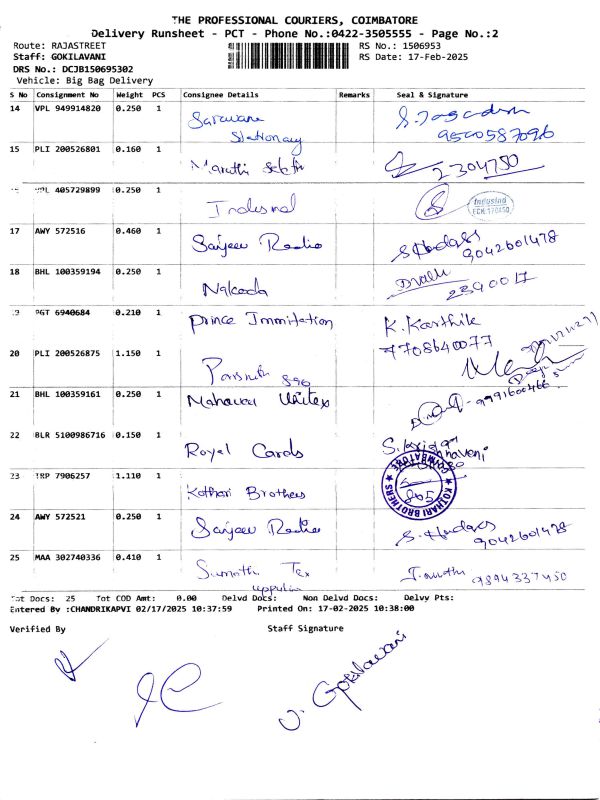 THE PROFESSIONAL COURIERS, COIMBATORE
Delivery Runsheet - PCT - Phone No.:0422-3505555 - Page No.:2
Route: RAJASTREET RS No.: 1506953
Staff: GOKILAVANI RS Date: 17-Feb-2025
DRS No.: DCJB150695302
Vehicle: Big Bag Delivery
S No Consignment No Weight PCS Consignee Details Remarks Seal & Signature
14 VPL 949914820 0.250 1 Saravana S. Jagadish
Stationary 9500587096
15 PLI 200526801 0.160 1 Maruthi 2304750
VPL 405729899 0.250 1 Indusind IndusInd
17 AWY 572516 0.460 1 Sanjeev Radio
9042601478
18 BHL 100359194 0.250 1 Nakoda
2390017
PGT 6940684 0.210 1 Prince Immitation K. Karthik
7708640077
20 PLI 200526875 1.150 1
21 BHL 100359161 0.250 1 Mahaveer Unitex 9991600466
22 BLR 5100986716 0.150 1 Royal Cards
23 TRP 7906257 1.110 1 Kothari Brothers KOTHARI BROTHERS COIMBATORE
24 AWY 572521 0.250 1 Sanjeev Radio
9042601478
25 MAA 302740336 0.410 1 Sumathi Tex 9894337450
Tot Docs: 25 Tot COD Amt: 0.00 Delvd Docs: Non Delvd Docs: Delvy Pts:
Entered By :CHANDRIKAPVI 02/17/2025 10:37:59 Printed On: 17-02-2025 10:38:00
Verified By Staff Signature
V. Gokilavani